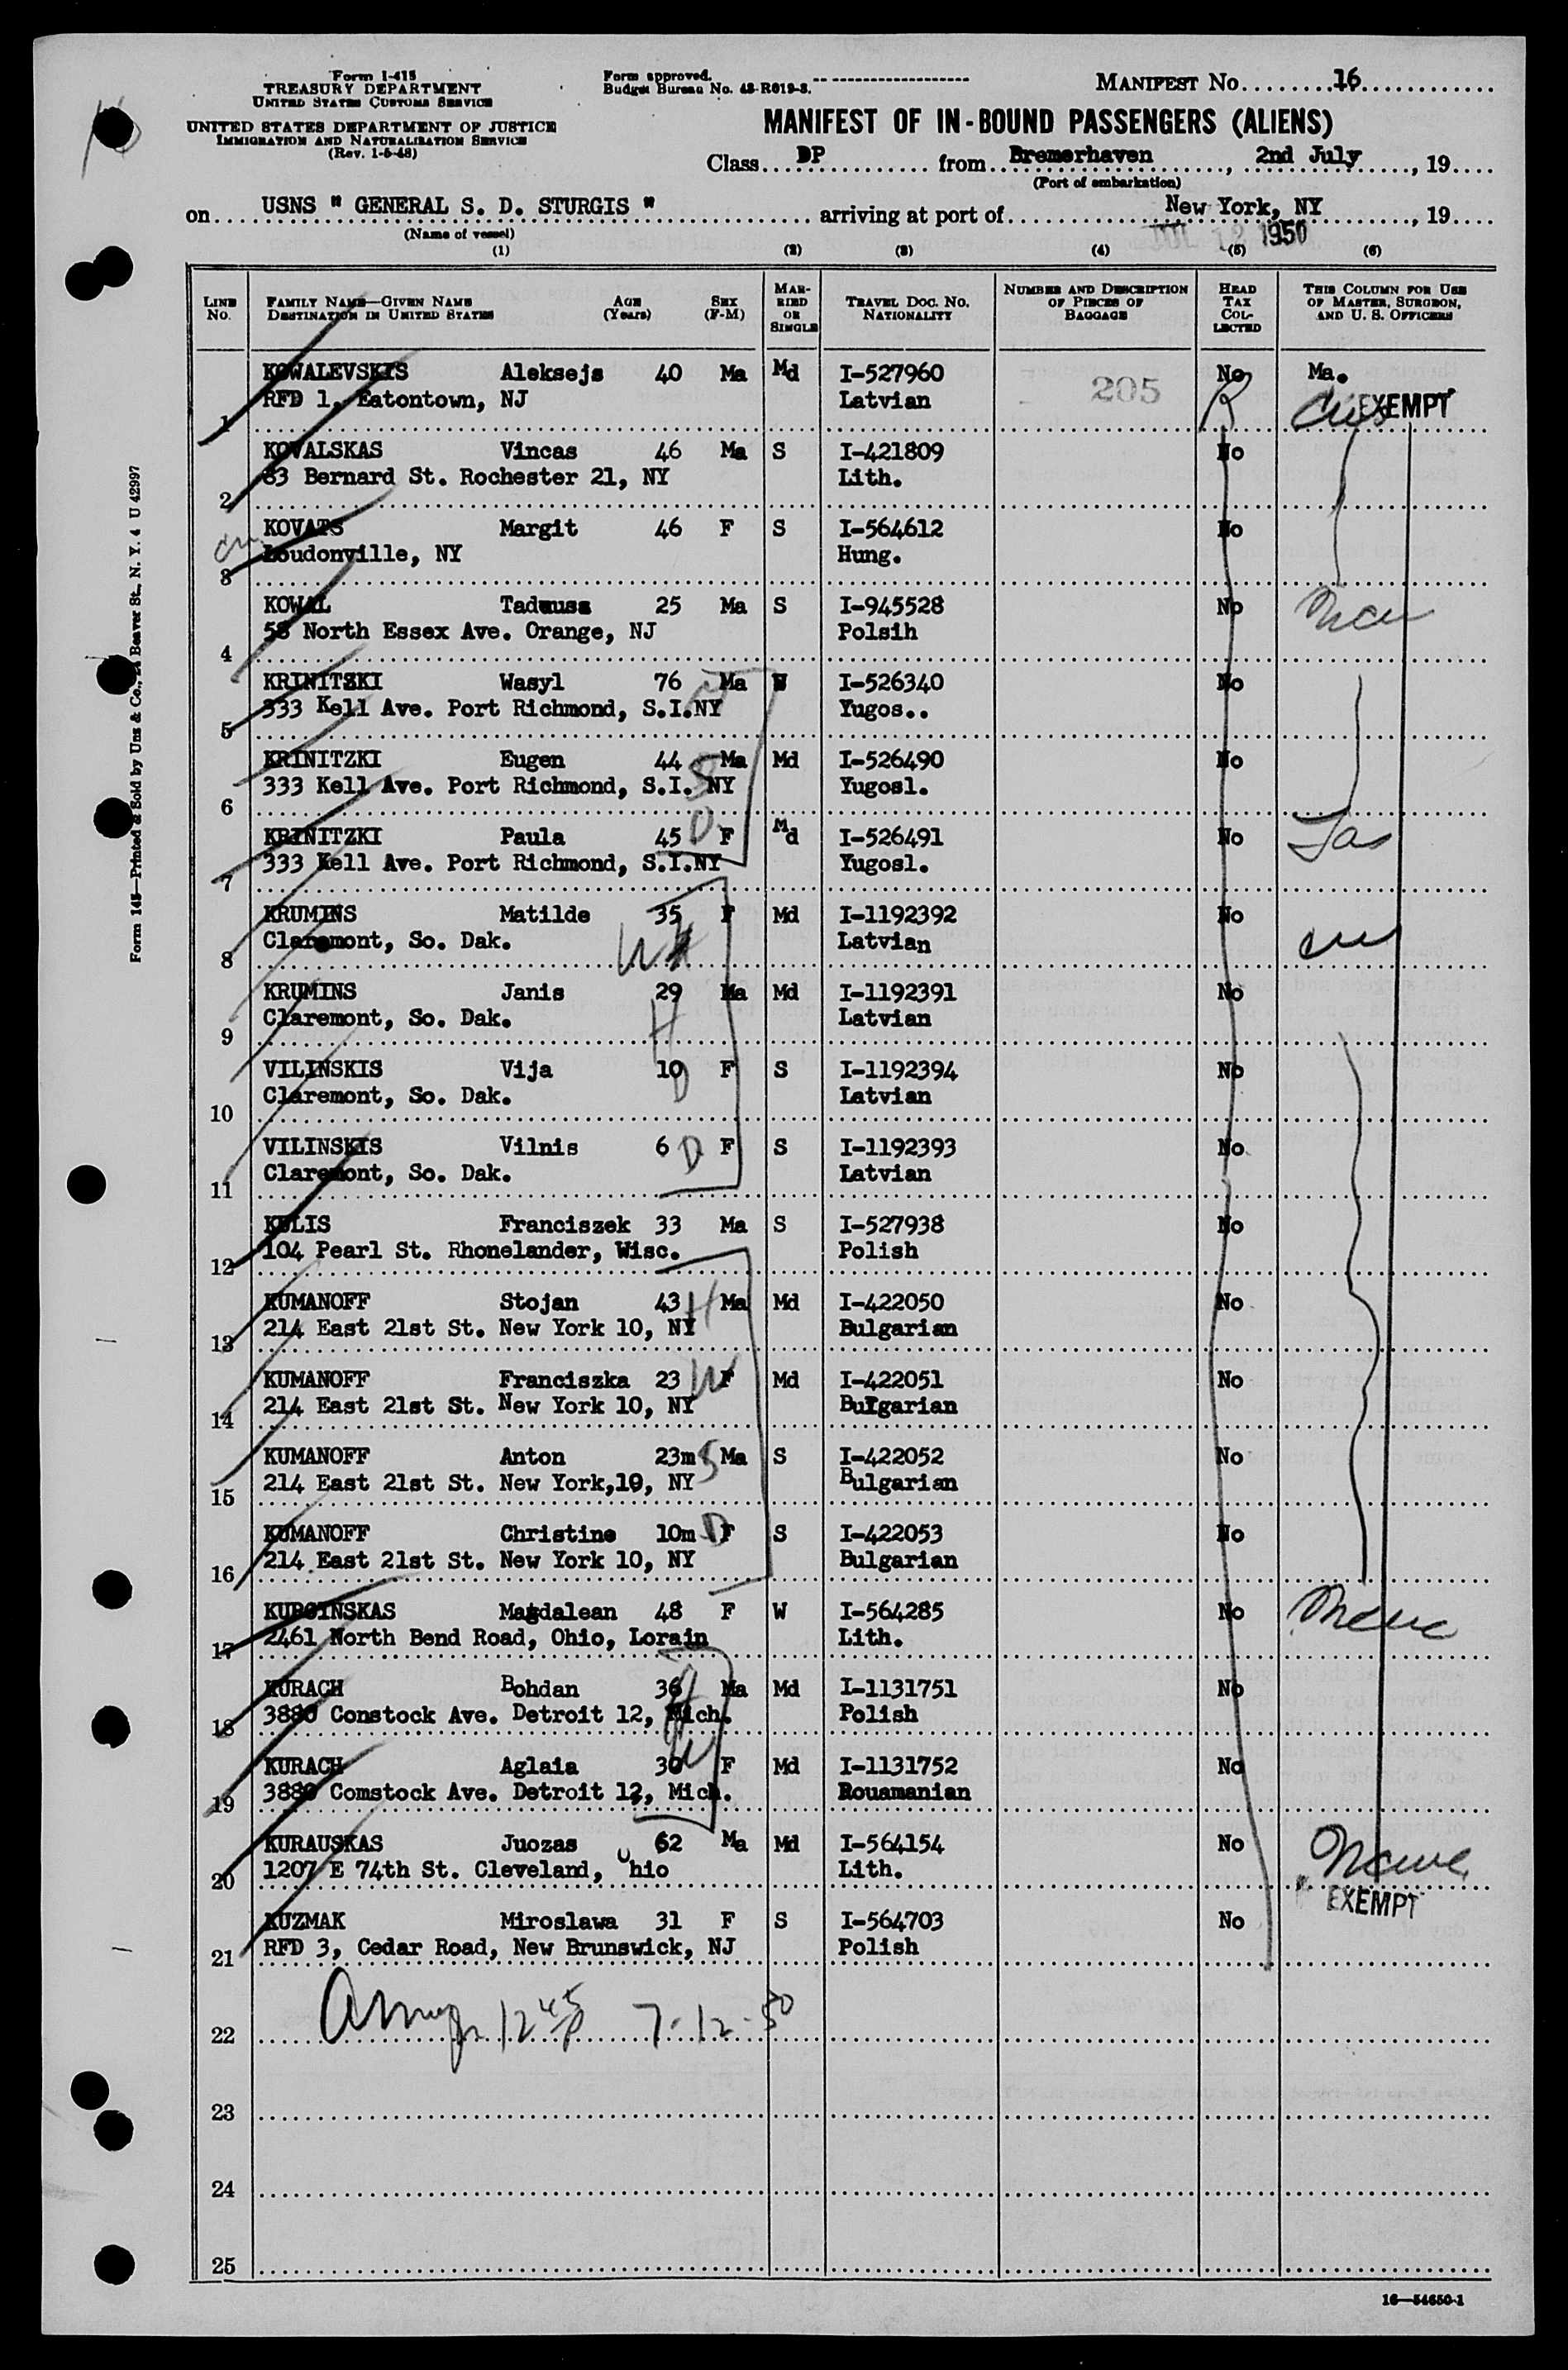 Form I-415
TREASURY DEPARTMENT
UNITED STATES CUSTOMS SERVICE
UNITED STATES DEPARTMENT OF JUSTICE
IMMIGRATION AND NATURALIZATION SERVICE
(Rev. 1-5-48)
Form approved.
Budget Bureau No. 43-R019-3.
MANIFEST No. 16
MANIFEST OF IN-BOUND PASSENGERS (ALIENS)
Class DP from Bremerhaven, 2nd July, 19
(Port of embarkation)
on USNS " GENERAL S. D. STURGIS " arriving at port of New York, NY, 19
(Name of vessel)
JUL 12 1950
(1) (2) (3) (4) (5) (6)
LINE No. FAMILY NAME—GIVEN NAME DESTINATION IN UNITED STATES AGE (Years) SEX (F-M) MARRIED OR SINGLE TRAVEL DOC. NO. NATIONALITY NUMBER AND DESCRIPTION OF PIECES OF BAGGAGE HEAD TAX COLLECTED THIS COLUMN FOR USE OF MASTER, SURGEON, AND U. S. OFFICERS
KOWALEVSKIS Aleksejs 40 Ma Md I-527960 205 No Ma.
1 RFD 1, Eatontown, NJ Latvian EXEMPT
KOVALSKAS Vincas 46 Ma S I-421809 No
2 83 Bernard St. Rochester 21, NY Lith.
KOVATS Margit 46 F S I-564612 No
3 Loudonville, NY Hung.
KOWAL Tadeusz 25 Ma S I-945528 No
4 58 North Essex Ave. Orange, NJ Polsih
KRINITZKI Wasyl 76 Ma W I-526340 No
5 333 Kell Ave. Port Richmond, S.I.NY Yugos..
KRINITZKI Eugen 44 S Ma Md I-526490 No
6 333 Kell Ave. Port Richmond, S.I. NY Yugosl.
KRINITZKI Paula 45 D F Md I-526491 No
7 333 Kell Ave. Port Richmond, S.I.NY Yugosl.
KRUMINS Matilde 35 F Md I-1192392 No
8 Claremont, So. Dak. W Latvian
KRUMINS Janis 29 Ma Md I-1192391 No
9 Claremont, So. Dak. H Latvian
VILINSKIS Vija 10 F S I-1192394 No
10 Claremont, So. Dak. D Latvian
VILINSKIS Vilnis 6 D F S I-1192393 No
11 Claremont, So. Dak. Latvian
KULIS Franciszek 33 Ma S I-527938 No
12 104 Pearl St. Rhonelander, Wisc. Polish
KUMANOFF Stojan 43 H Ma Md I-422050 No
13 214 East 21st St. New York 10, NY Bulgarian
KUMANOFF Franciszka 23 W F Md I-422051 No
14 214 East 21st St. New York 10, NY Bulgarian
KUMANOFF Anton 23m S Ma S I-422052 No
15 214 East 21st St. New York,10, NY Bulgarian
KUMANOFF Christine 10m D F S I-422053 No
16 214 East 21st St. New York 10, NY Bulgarian
KURCINSKAS Magdalean 48 F W I-564285 No
17 2461 North Bend Road, Ohio, Lorain Lith.
KURACH Bohdan 36 H Ma Md I-1131751 No
18 3880 Constock Ave. Detroit 12, Mich. Polish
KURACH Aglaia 30 W F Md I-1131752 No
19 3880 Comstock Ave. Detroit 12, Mich. Rouamanian
KURAUSKAS Juozas 62 Ma Md I-564154 No
20 1207 E 74th St. Cleveland, Ohio Lith.
EXEMPT
KUZMAK Miroslawa 31 F S I-564703 No
21 RFD 3, Cedar Road, New Brunswick, NJ Polish
22 12 45 P 7-12-50
23
24
25
16—54650-1
Form 145—Printed & Sold by Uns & Co., 24 Beaver St., N. Y. 4 U 42997